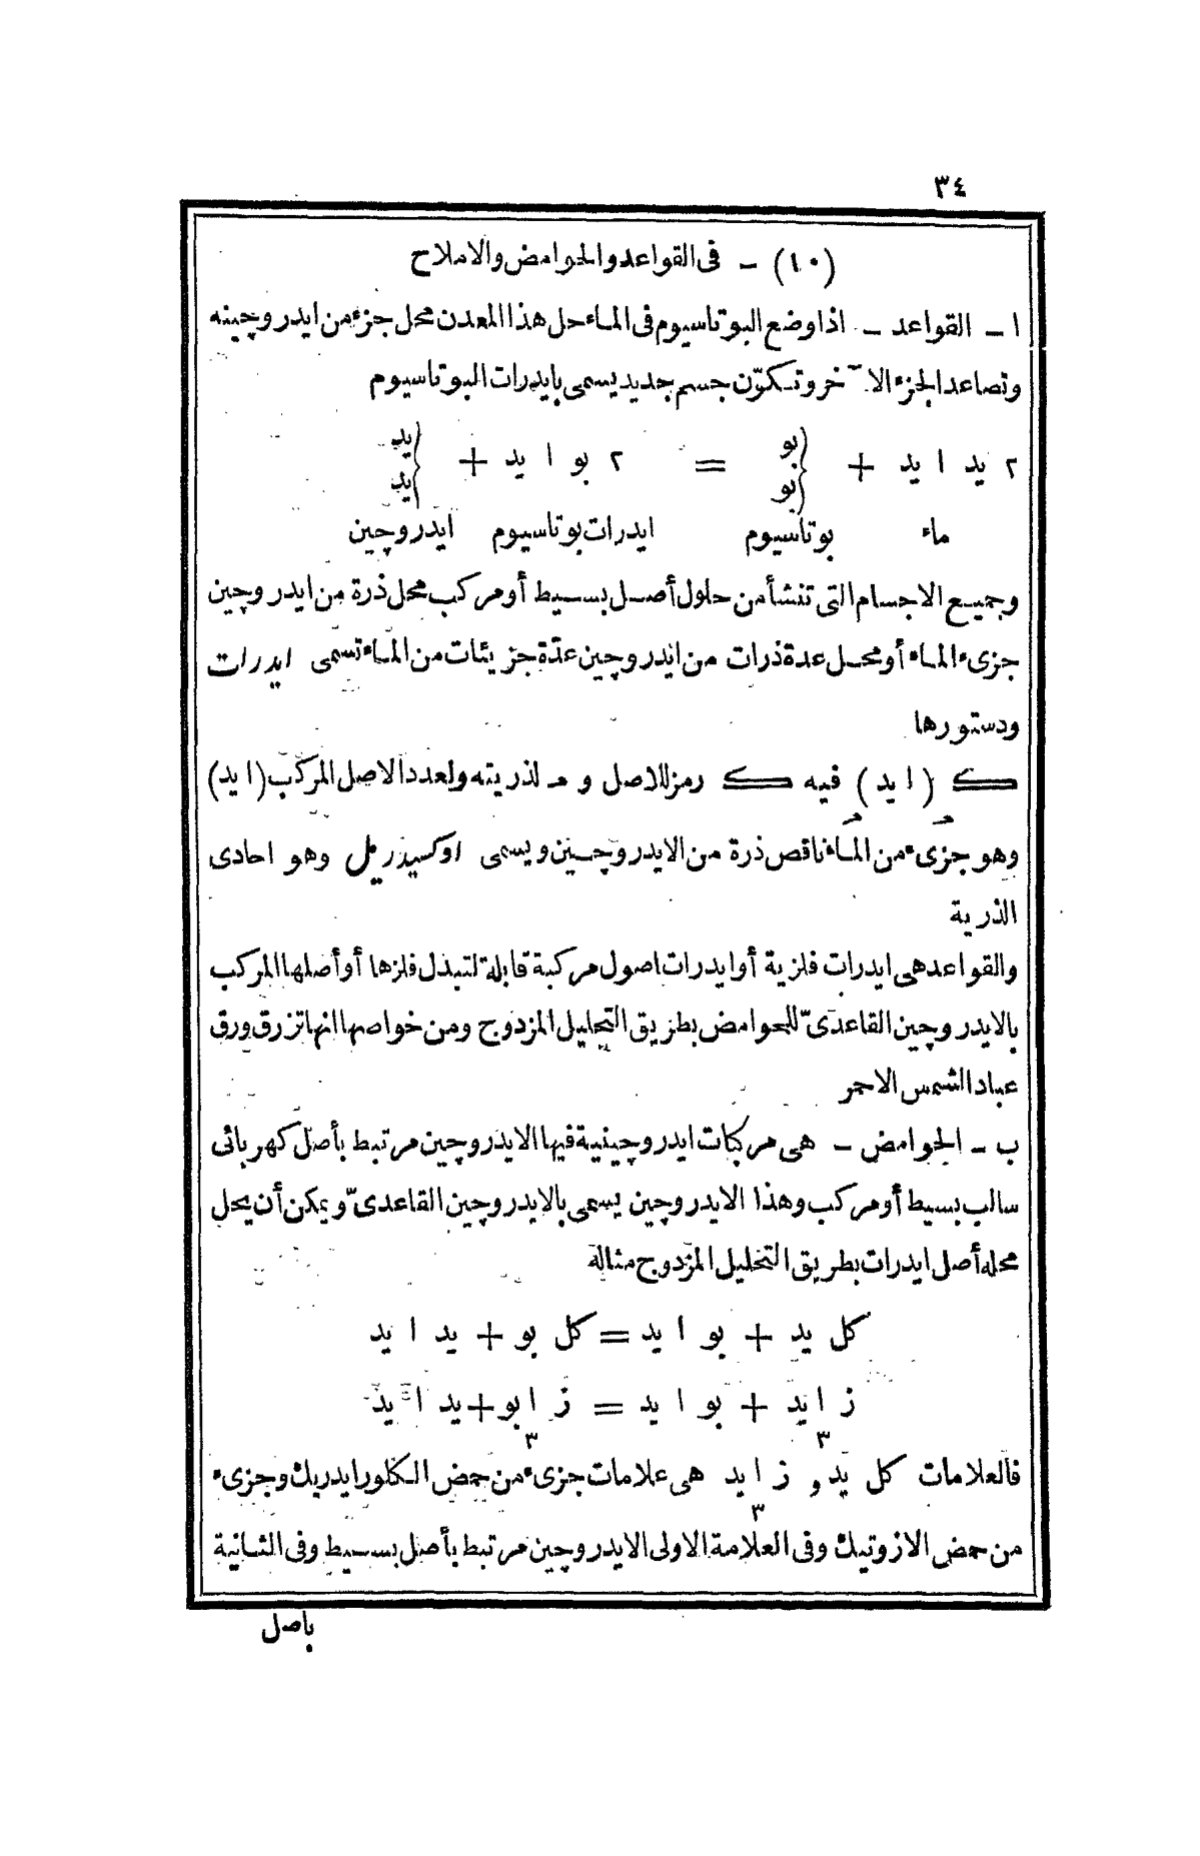 ٣٤
(١٠) ـ فى القواعد والحوامض والاملاح
ا ـ القواعد ـ اذا وضع البوتاسيوم فى الماء حل هذا المعدن محل جزء من ايدروچينه
وتصاعد الجزء الآخر وتكوّن جسم جديد يسمى بايدرات البوتاسيوم
٢ يد ا يد + {بو بو = ٢ بو ا يد + {يد يد
ماء بوتاسيوم ايدرات بوتاسيوم ايدروچين
وجميع الاجسام التى تنشأ من حلول أصل بسيط أو مركب محل ذرة من ايدروچين
جزىء الماء أو محل عدة ذرات من ايدروچين عدّة جزيئات من الماء تسمى ايدرات
ودستورها
ك (ا يد)م فيه ك رمز للاصل و مـ لذريته ولعدد الاصل المركب (ا يد)
وهو جزىء من الماء ناقص ذرة من الايدروچين ويسمى اوكسيدريل وهو احادى
الذرية
والقواعد هى ايدرات فلزية أو ايدرات اصول مركبة قابلة لتبدل فلزها أو أصلها المركب
بالايدروچين القاعدىّ للحوامض بطريق التحليل المزدوج ومن خواصها انها تزرق ورق
عباد الشمس الاحمر
ب ـ الحوامض ـ هى مركبات ايدروچينية فيها الايدروچين مرتبط بأصل كهربائى
سالب بسيط أو مركب وهذا الايدروچين يسمى بالايدروچين القاعدىّ ويمكن أن يحل
محله أصل ايدرات بطريق التحليل المزدوج مثاله
كل يد + بو ا يد = كل بو + يد ا يد
ز ا٣ يد + بو ا يد = ز ا٣ بو + يد ا يد
فالعلامات كل يد و ز ا٣ يد هى علامات جزىء من حمض الكلورايدريك وجزىء
من حمض الازوتيك وفى العلامة الاولى الايدروچين مرتبط بأصل بسيط وفى الثانية
باصل